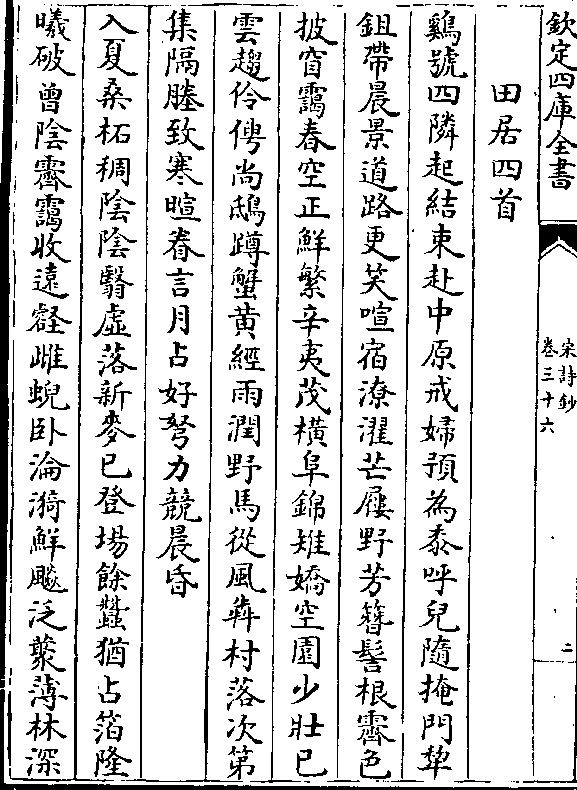 欽定四庫全書
宋詩鈔
卷三十六
二
田居四首
鷄號四隣起結束赴中原戒婦預為黍呼兒隨掩門犂
鉏帶晨景道路更笑喧宿潦濯芒屨野芳簪髻根霽色
披窅靄春空正鮮繁辛夷茂橫阜錦雉嬌空園少壯已
雲趨伶俜尚鴟蹲蟹黄經雨潤野馬從風犇村落次第
集隔塍致寒暄眷言月占好努力競晨昏
入夏桑柘稠陰陰翳虛落新麥已登場餘蠶猶占箔隆
曦破曾陰霽靄收遠壑雌蜺卧淪漪鮮飈泛藂薄林深